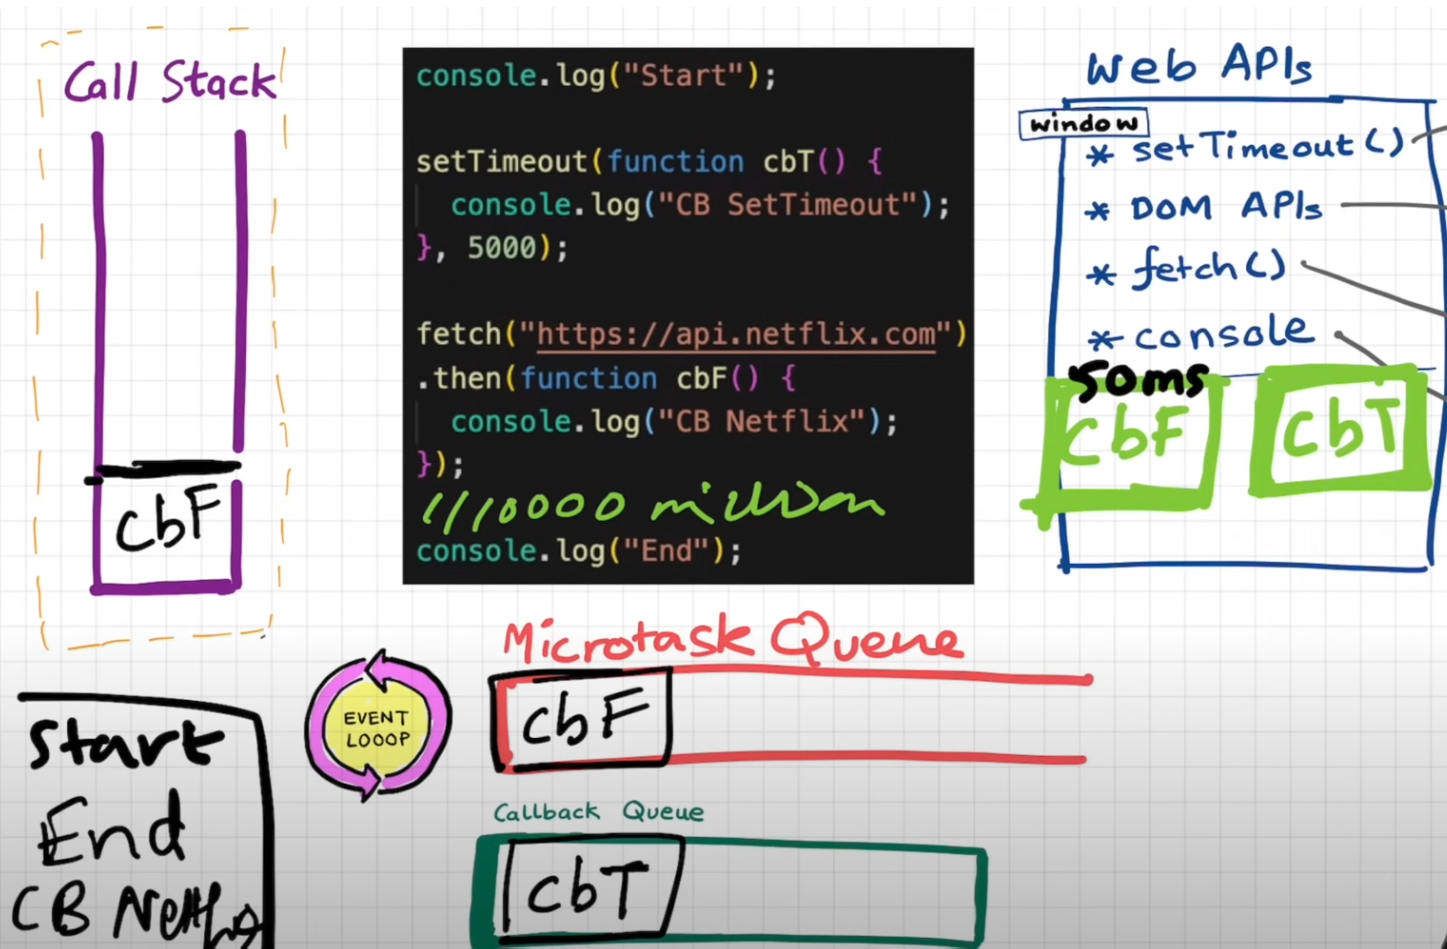 Call Stack
cbF
console.log("Start");
setTimeout(function cbT() {
console.log("CB SetTimeout");
}, 5000);
fetch("https://api.netflix.com")
.then(function cbF() {
console.log("CB Netflix");
});
console.log("End");
Web APIs
window
* setTimeout()
* DOM APIs
* fetch()
* console
50ms
cbF
cbT
Microtask Queue
cbF
EVENT
LOOOP
Callback Queue
cbT
Start
End
CB